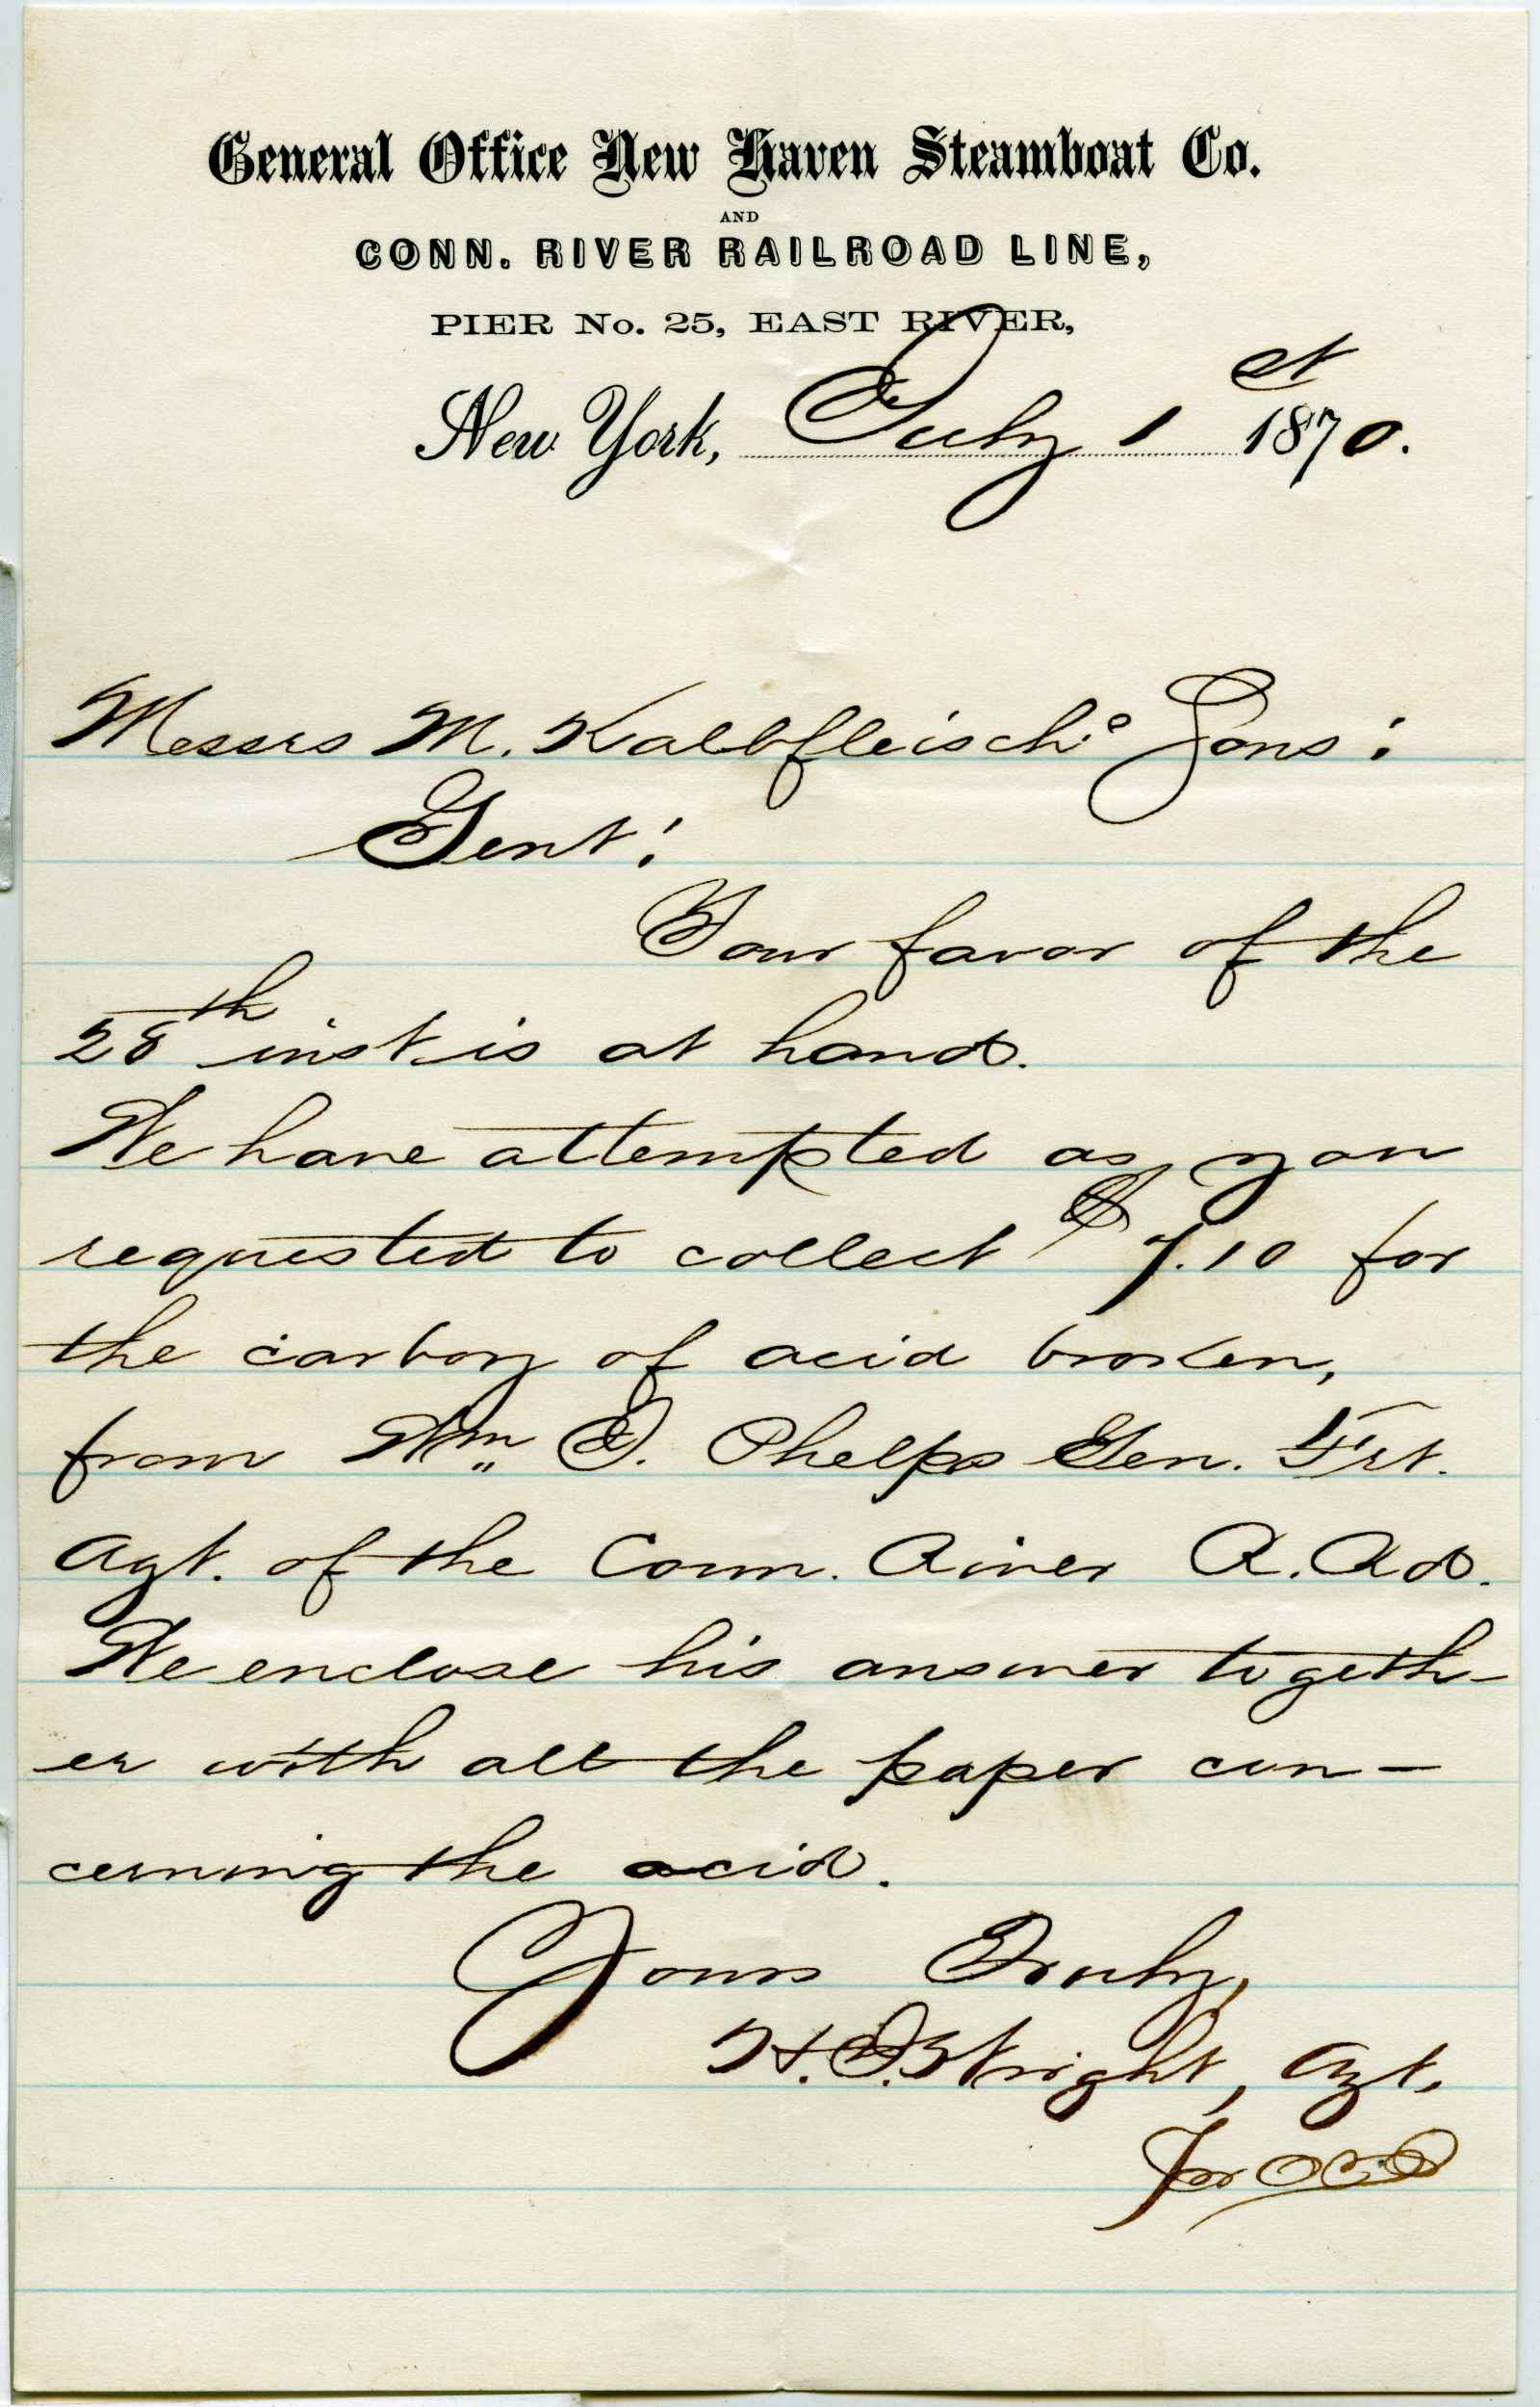 General Office New Haven Steamboat Co.
AND
CONN. RIVER RAILROAD LINE,
PIER No. 25, EAST RIVER,
New York, July 1st 1870.
Messrs M. Kalbfleisch's Sons:
Gent:
Your favor of the
28th inst is at hand.
We have attempted as you
requested to collect $7.10 for
the carboy of acid broken,
from Wm. I. Phelps Gen. Frt.
Agt. of the Conn. River R. Rd.
We enclose his answer togeth-
er with all the paper con-
cerning the acid.
Yours Truly,
H. I. Wright, Agt.